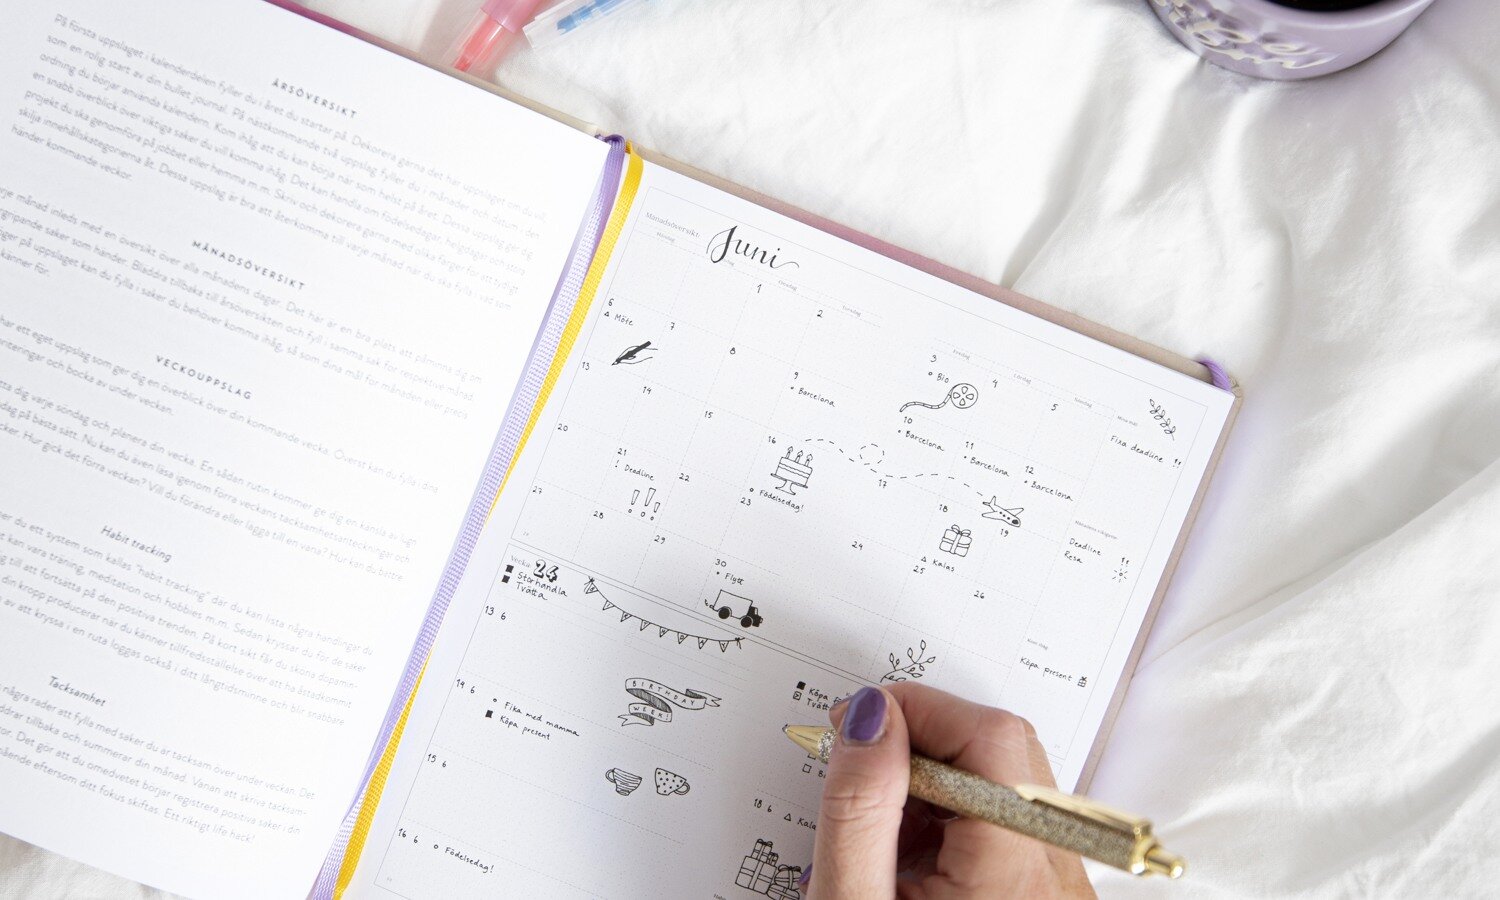 ÅRSÖVERSIKT
På första uppslaget i kalenderdelen fyller du i året du startar på. Dekorera gärna det här uppslaget om du vill,
som en rolig start av din bullet journal. På nästkommande två uppslag fyller du i månader och datum i den
ordning du börjar använda kalendern. Kom ihåg att du kan börja när som helst på året. Dessa uppslag ger dig
en snabb överblick över viktiga saker du vill komma ihåg. Det kan handla om födelsedagar, helgdagar och stora
projekt du ska genomföra på jobbet eller hemma m.m. Skriv och dekorera gärna med olika färger för att tydligt
skilja innehållskategorierna åt. Dessa uppslag är bra att återkomma till varje månad när du ska fylla i vad som
händer kommande veckor.
MÅNADSÖVERSIKT
månad inleds med en översikt över alla månadens dagar. Det här är en bra plats att påminna dig om
saker som händer. Bläddra tillbaka till årsöversikten och fyll i samma sak för respektive månad.
på uppslaget kan du fylla i saker du behöver komma ihåg, så som dina mål för månaden eller precis
känner för.
VECKOUPPSLAG
har ett eget uppslag som ger dig en överblick över din kommande vecka. Överst kan du fylla i dina
och bocka av under veckan.
dig varje söndag och planera din vecka. En sådan rutin kommer ge dig en känsla av lugn
på bästa sätt. Nu kan du även läsa igenom förra veckans tacksamhetsanteckningar och
Hur gick det förra veckan? Vill du förändra eller lägga till en vana? Hur kan du bättre
Habit tracking
du ett system som kallas "habit tracking" där du kan lista några handlingar du
kan vara träning, meditation och hobbies m.m. Sedan kryssar du för de saker
till att fortsätta på den positiva trenden. På kort sikt får du skön dopamin-
din kropp producerar när du känner tillfredsställelse över att ha åstadkommit
av att kryssa i en ruta loggas också i ditt långtidsminne och blir snabbare
Tacksamhet
några rader att fylla med saker du är tacksam över under veckan. Det
tillbaka och summerar din månad. Vanan att skriva tacksam-
Det gör att du omedvetet börjar registrera positiva saker i din
eftersom ditt fokus skiftas. Ett riktigt life hack!
Månadsöversikt: Juni
Måndag
Torsdag
Fredag
Lördag
Söndag
1
2
3
Bio
4
5
Fixa deadline !!
6
Möte
7
8
9
Barcelona
10
Barcelona
11
Barcelona
12
Barcelona
13
14
15
16
Födelsedag!
17
18
Kalas
19
Deadline !!
Resa
20
21
! Deadline
!!!
22
23
24
25
26
27
28
29
30
Flytt
Köpa present
Vecka: 24
Storhandla
Tvätta
13 6
BIRTHDAY
WEEK!
14 6
Fika med mamma
Köpa present
15 6
16 6
Födelsedag!
Köpa
Tvätt
18 6